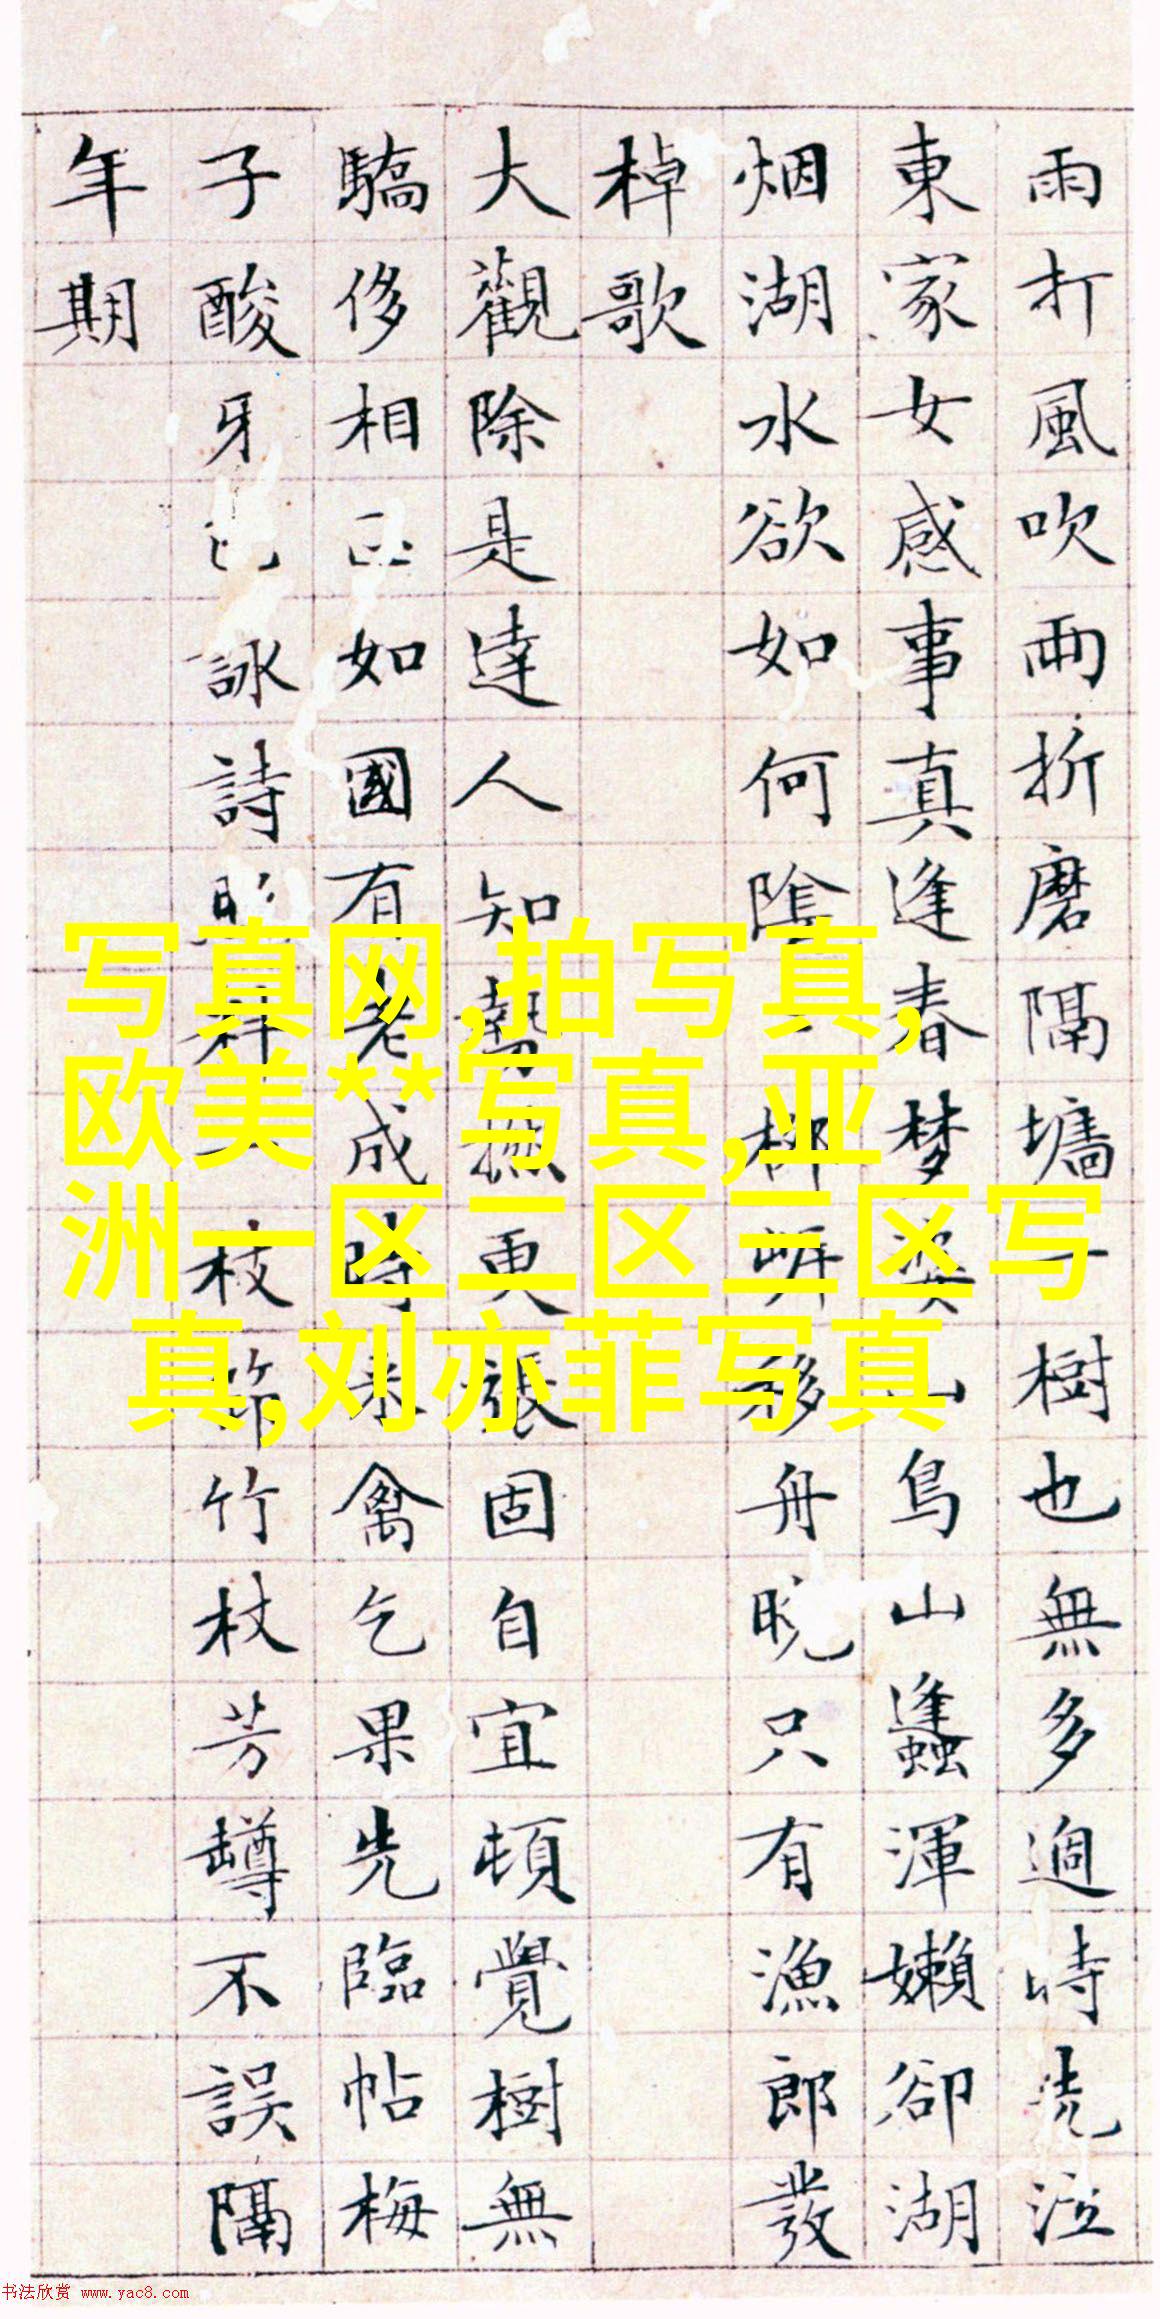 雨打風吹兩折磨隔墻一樹也無多過時
東家女感事真逢春夢 山鳥山蠭渾嬾卻湖
烟湖水欲如何陰 柳 移舟晚只有漁郎發
棹歌
大觀除是達人知 更張固自宜頓覺樹無
驕侈相 如國有老成時 禽乞果先臨帖梅
子酸牙 詠詩 枝 竹杖芳罇不誤隔
年期
写真网,拍写真,
欧美**写真,亚
洲一区二区三区写
真,刘亦菲写真
书法欣赏 www.yac8.com